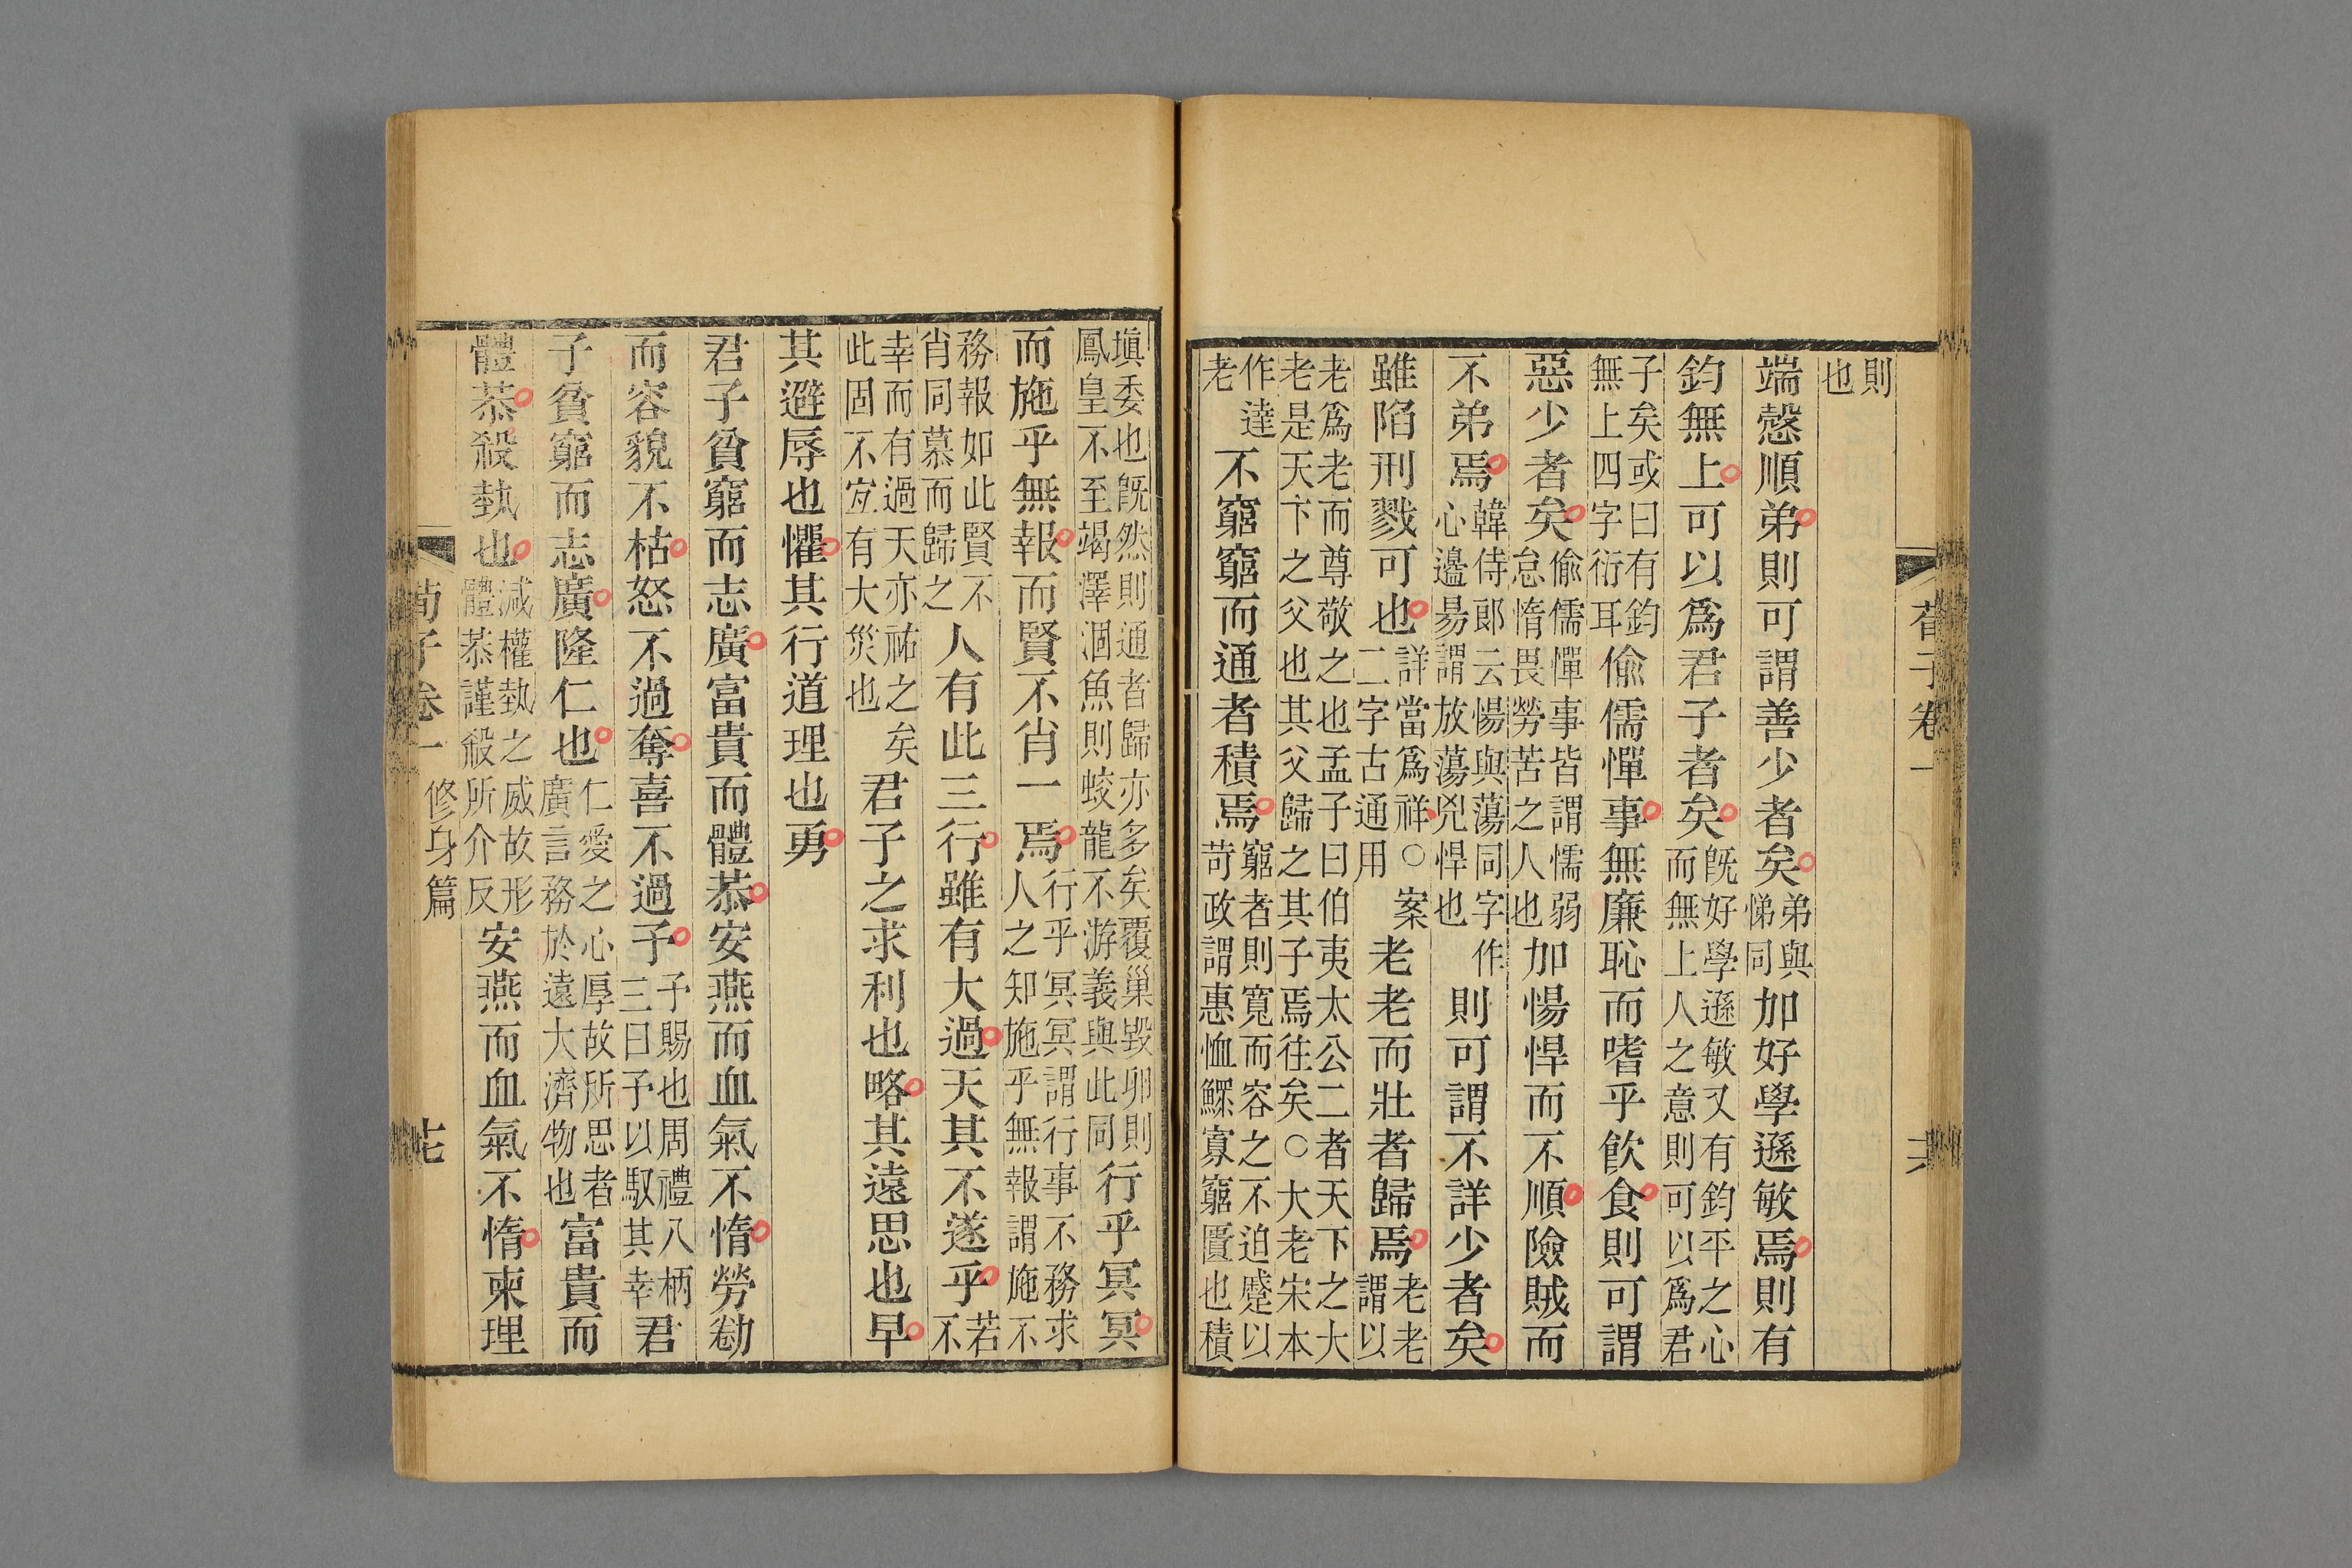 荀子卷一
六
則
也
端愨順弟則可謂善少者矣弟與悌同加好學遜敏焉則有
鈞無上可以爲君子者矣旣好學遜敏又有鈞平之心而無上人之意則可以爲君
子矣或曰有鈞無上四字衍耳偷儒憚事無廉恥而嗜乎飲食則可謂
惡少者矣偷儒憚事皆謂懦弱怠惰畏勞苦之人也加愓悍而不順險賊而
不弟焉韓侍郎云愓與蕩同字作心邊昜謂放蕩兇悍也則可謂不詳少者矣
雖陷刑戮可也詳當爲祥○案二字古通用老老而壯者歸焉老老謂以
老爲老而尊敬之也孟子曰伯夷太公二者天下之大老是天下之父也其父歸之其子焉往矣○大老宋本
作達老不窮窮而通者積焉窮者則寬而容之不迫蹙以苛政謂惠恤鰥寡窮匱也積
塡委也旣然則通者歸亦多矣覆巢毀卵則鳳皇不至竭澤涸魚則蛟龍不游義與此同行乎冥冥
而施乎無報而賢不肖一焉行乎冥冥謂行事不務求人之知施乎無報謂施不
務報如此賢不肖同慕而歸之人有此三行雖有大過天其不遂乎若不
幸而有過天亦祐之矣此固不宐有大災也君子之求利也略其遠思也早
其避辱也懼其行道理也勇
君子貧窮而志廣富貴而體恭安燕而血氣不惰勞勌
而容貌不枯怒不過奪喜不過予予賜也周禮八柄三曰予以馭其幸君
子貧窮而志廣隆仁也仁愛之心厚故所思者廣言務於遠大濟物也富貴而
體恭殺埶也減權埶之威故形體恭謹殺所介反安燕而血氣不惰柬理
荀子卷一
修身篇
七